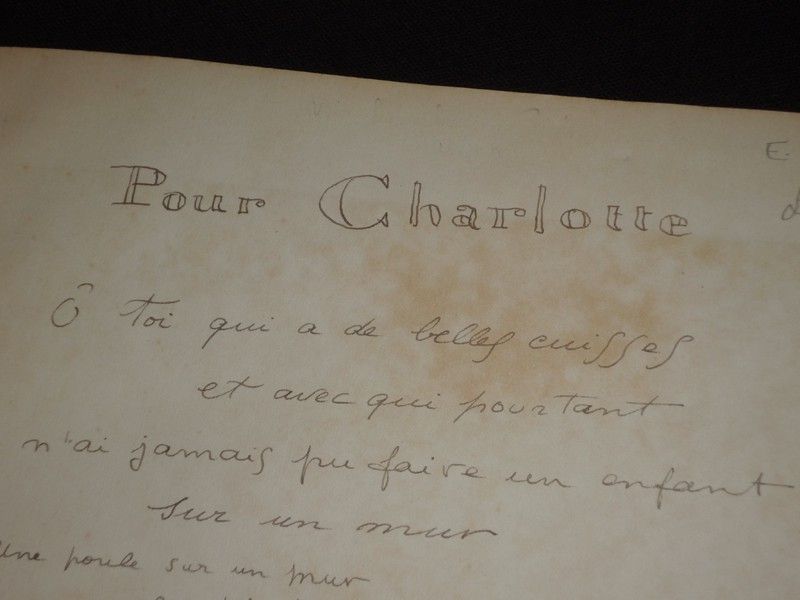 Pour Charlotte
E.
Ô toi qui a de belles cuisses
et avec qui pourtant
n'ai jamais pu faire un enfant
sur un mur
une poule sur un mur